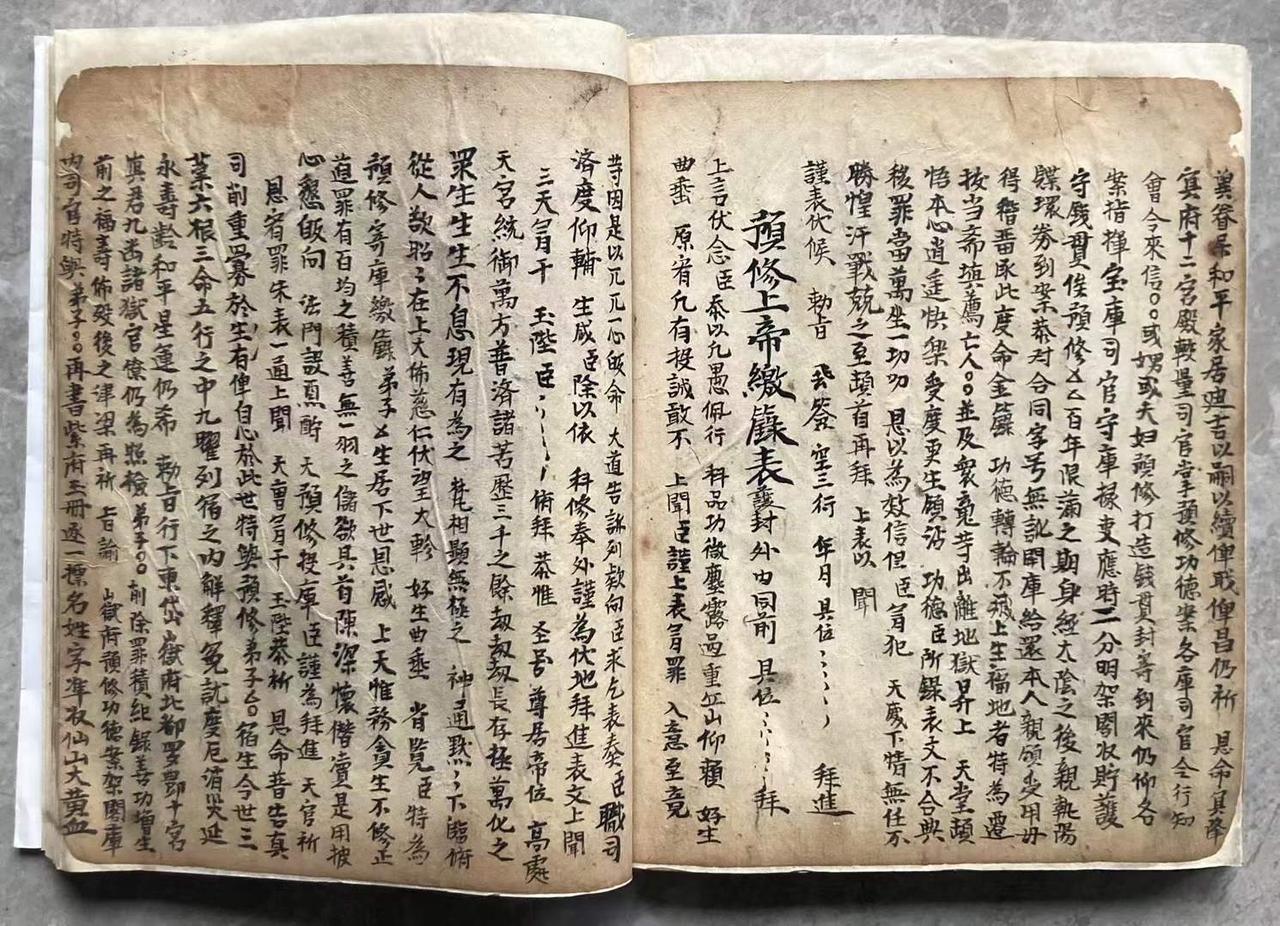 冀眷屬和平家居迪吉以嗣以續俾戩俾昌仍祈　恩命冥降
冥府十二宮殿較量司官掌預修功德案各庫司官令行知
會令來信〇〇或嬶或夫妇預修打造錢貫封筹到來仍仰各
案指揮　宝庫司官守庫掾吏應時二分明架閣收貯護
守錢貫俟預修厶百年限滿之期身經太陰之後親執陽
牒环券到案恭对合同字号無訛開庫給還本人親領受用毋
得稽畱承此度命金籙　功德轉輪不滅上生福地者特為遷
拔当斋填薦亡人〇〇並及衆䰟䓁出離地獄昇上　天堂頓
悟本心逍遥快樂受度更生領沾　功德臣所錄表文不合典
稜罪當萬坐一切功　恩以為效信但臣𡨋犯　天威下情無任不
勝惶汗戰兢之至頓首再拜　上表以　聞
謹表伏候　勅旨　咒簽　空三行　年月具位　拜進
預修上帝繳籙表 護封外由同前　具位　拜
上言伏念臣　忝以凡愚佩行　科品功微塵露過重丘山仰賴　好生
曲垂　原宥凡有投誠敢不　上聞臣謹上表𡨋罪　入意至竟
䓁因是以兀兀心皈命　大道告訴列欵向臣求乞表奏臣職司
济度仰輔　生成臣除以依　科修奉外謹為伏地拜進表文上聞
三天𡨋干　玉陛臣　俯拜　恭惟　圣号尊居帝位　高處
天宮統御萬方普济諸苦歷三千之餘劫劫劫長存極萬化之
眾生生生不息現有為之　梵相顯無極之　神通默〻下臨俯
從人欲昭〻在上大佈慈仁伏望大軫　好生曲垂　省覽臣特為
預修寄庫繳籙　弟子厶生居下世恩感　上天惟務貪生不修正
道罪有百均之積善無一羽之儲欲具首陳深懷僣瀆是用披
心懇皈向　法門設真酹　天預修投庫臣謹為拜進　天官祈
恩宥罪朱表一通上聞　天曹𡨋干　玉陛恭祈　恩命普告真
司削重募於生有俾自心於此世特與預修弟子厶〇宿生今世三
業六根三命五行之中九曜列宿之内解釋冤訧度厄消災延
永壽齡和平星運仍希　勅旨行下東岱嶽府北都罗酆十宮
真君九壘諸獄官僚仍為照檢　弟子〇〇削除罪積紀錄善功增生
前之福壽佈殁後之津梁再祈　旨諭　嶽府預修功德案架閣庫
内司官特與　弟子〇〇再書紫府玉冊逐一標名姓字准收仙山大黄血